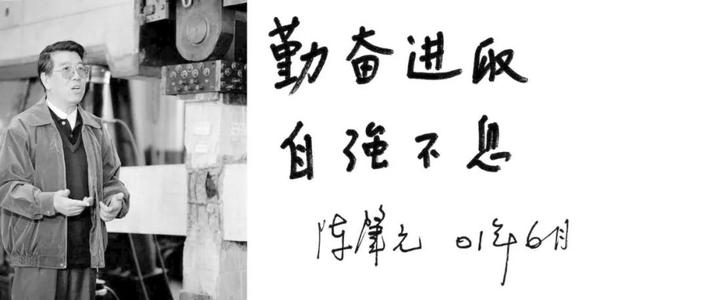 勤奋进取
自强不息
陈肇元 01年6月